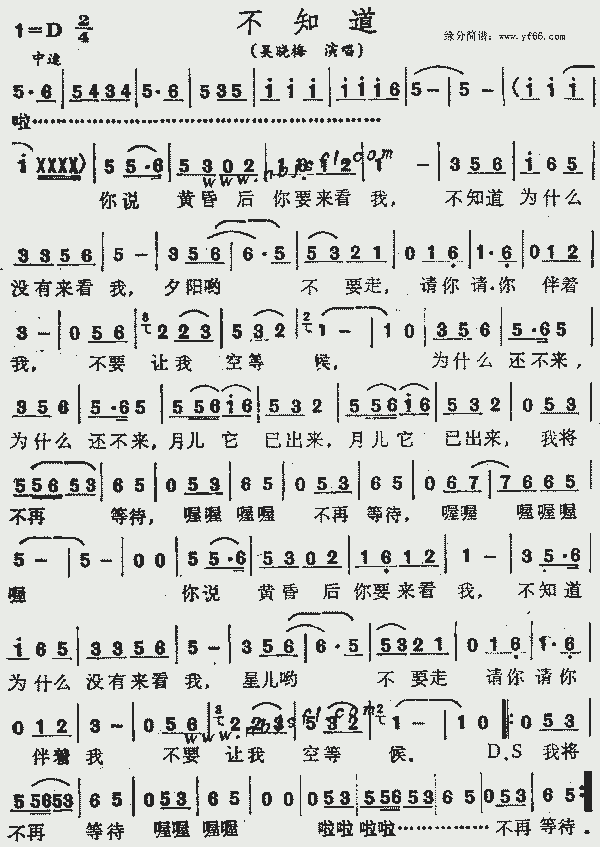 不知道
1=D 2/4
(吴晓梅 演唱)
缘分简谱: www.yf66.com
中速
5·6 | 5434 | 5·6 | 535 | i i i | i i i 6 | 5 - | 5 - | (i i i |
啦……………………………………
i XXXX) | 5 5·6 | 5302 | 1612 | 1 - | 356 | i65 |
www.hbscfl.com
你说 黄昏 后 你要来看 我, 不知道 为什么
3356 | 5 - | 356 | 6·5 | 5321 | 016 | 1·6 | 012 |
没有来看 我, 夕阳哟 不 要走, 请你 请·你 伴着
3 - | 056 | 223 | 532 | 1 - | 10 | 356 | 5·65 |
我, 不要 让我 空等 候, 为什么 还不来,
356 | 5·65 | 556i6 | 532 | 556i6 | 532 | 053 |
为什么 还不来,月儿 它 已出来,月儿 它 已出来, 我将
55653 | 65 | 053 | 65 | 053 | 65 | 067 | 7665 |
不再 等待, 喔喔 喔喔 不再 等待, 喔喔 喔喔喔
5 - | 5 - | 00 | 55·6 | 5302 | 1612 | 1 - | 35·6 |
喔 你说 黄昏 后 你要来看 我, 不知道
i65 | 3356 | 5 - | 356 | 6·5 | 5321 | 016 | 1·6 |
为什么 没有来看 我, 星儿哟 不 要走 请你 请你
012 | 3 - | 056 | 223 | 532 | 1 - | 10 :| 053 |
www.hbscfl.com
伴着 我 不要 让我 空等 候。 D.S 我将
55653 | 65 | 053 | 65 | 00 | 053 | 55653 | 053 | 65 :‖
不再 等待 喔喔 喔喔 啦啦 啦啦…………不再 等待.